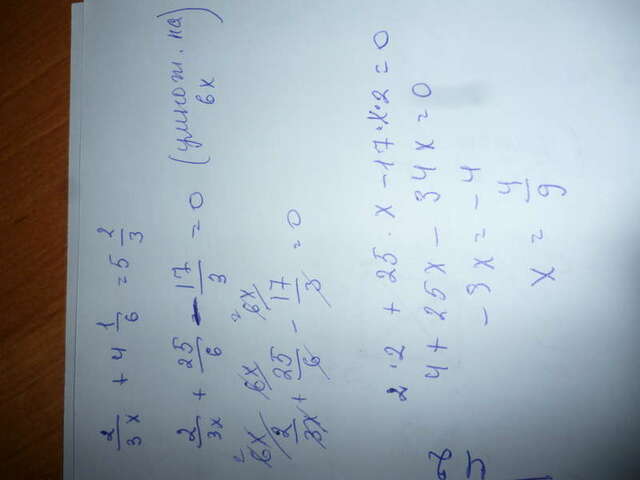 2/3x + 4 1/6 = 5 2/3
2/3x + 25/6 - 17/3 = 0 (умнож. на 6x)
2 6x 6x 2 6x
2/3x + 25/6 - 17/3 = 0
2·2 + 25·x - 17·x·2 = 0
4 + 25x - 34x = 0
-9x = -4
x = 4/9